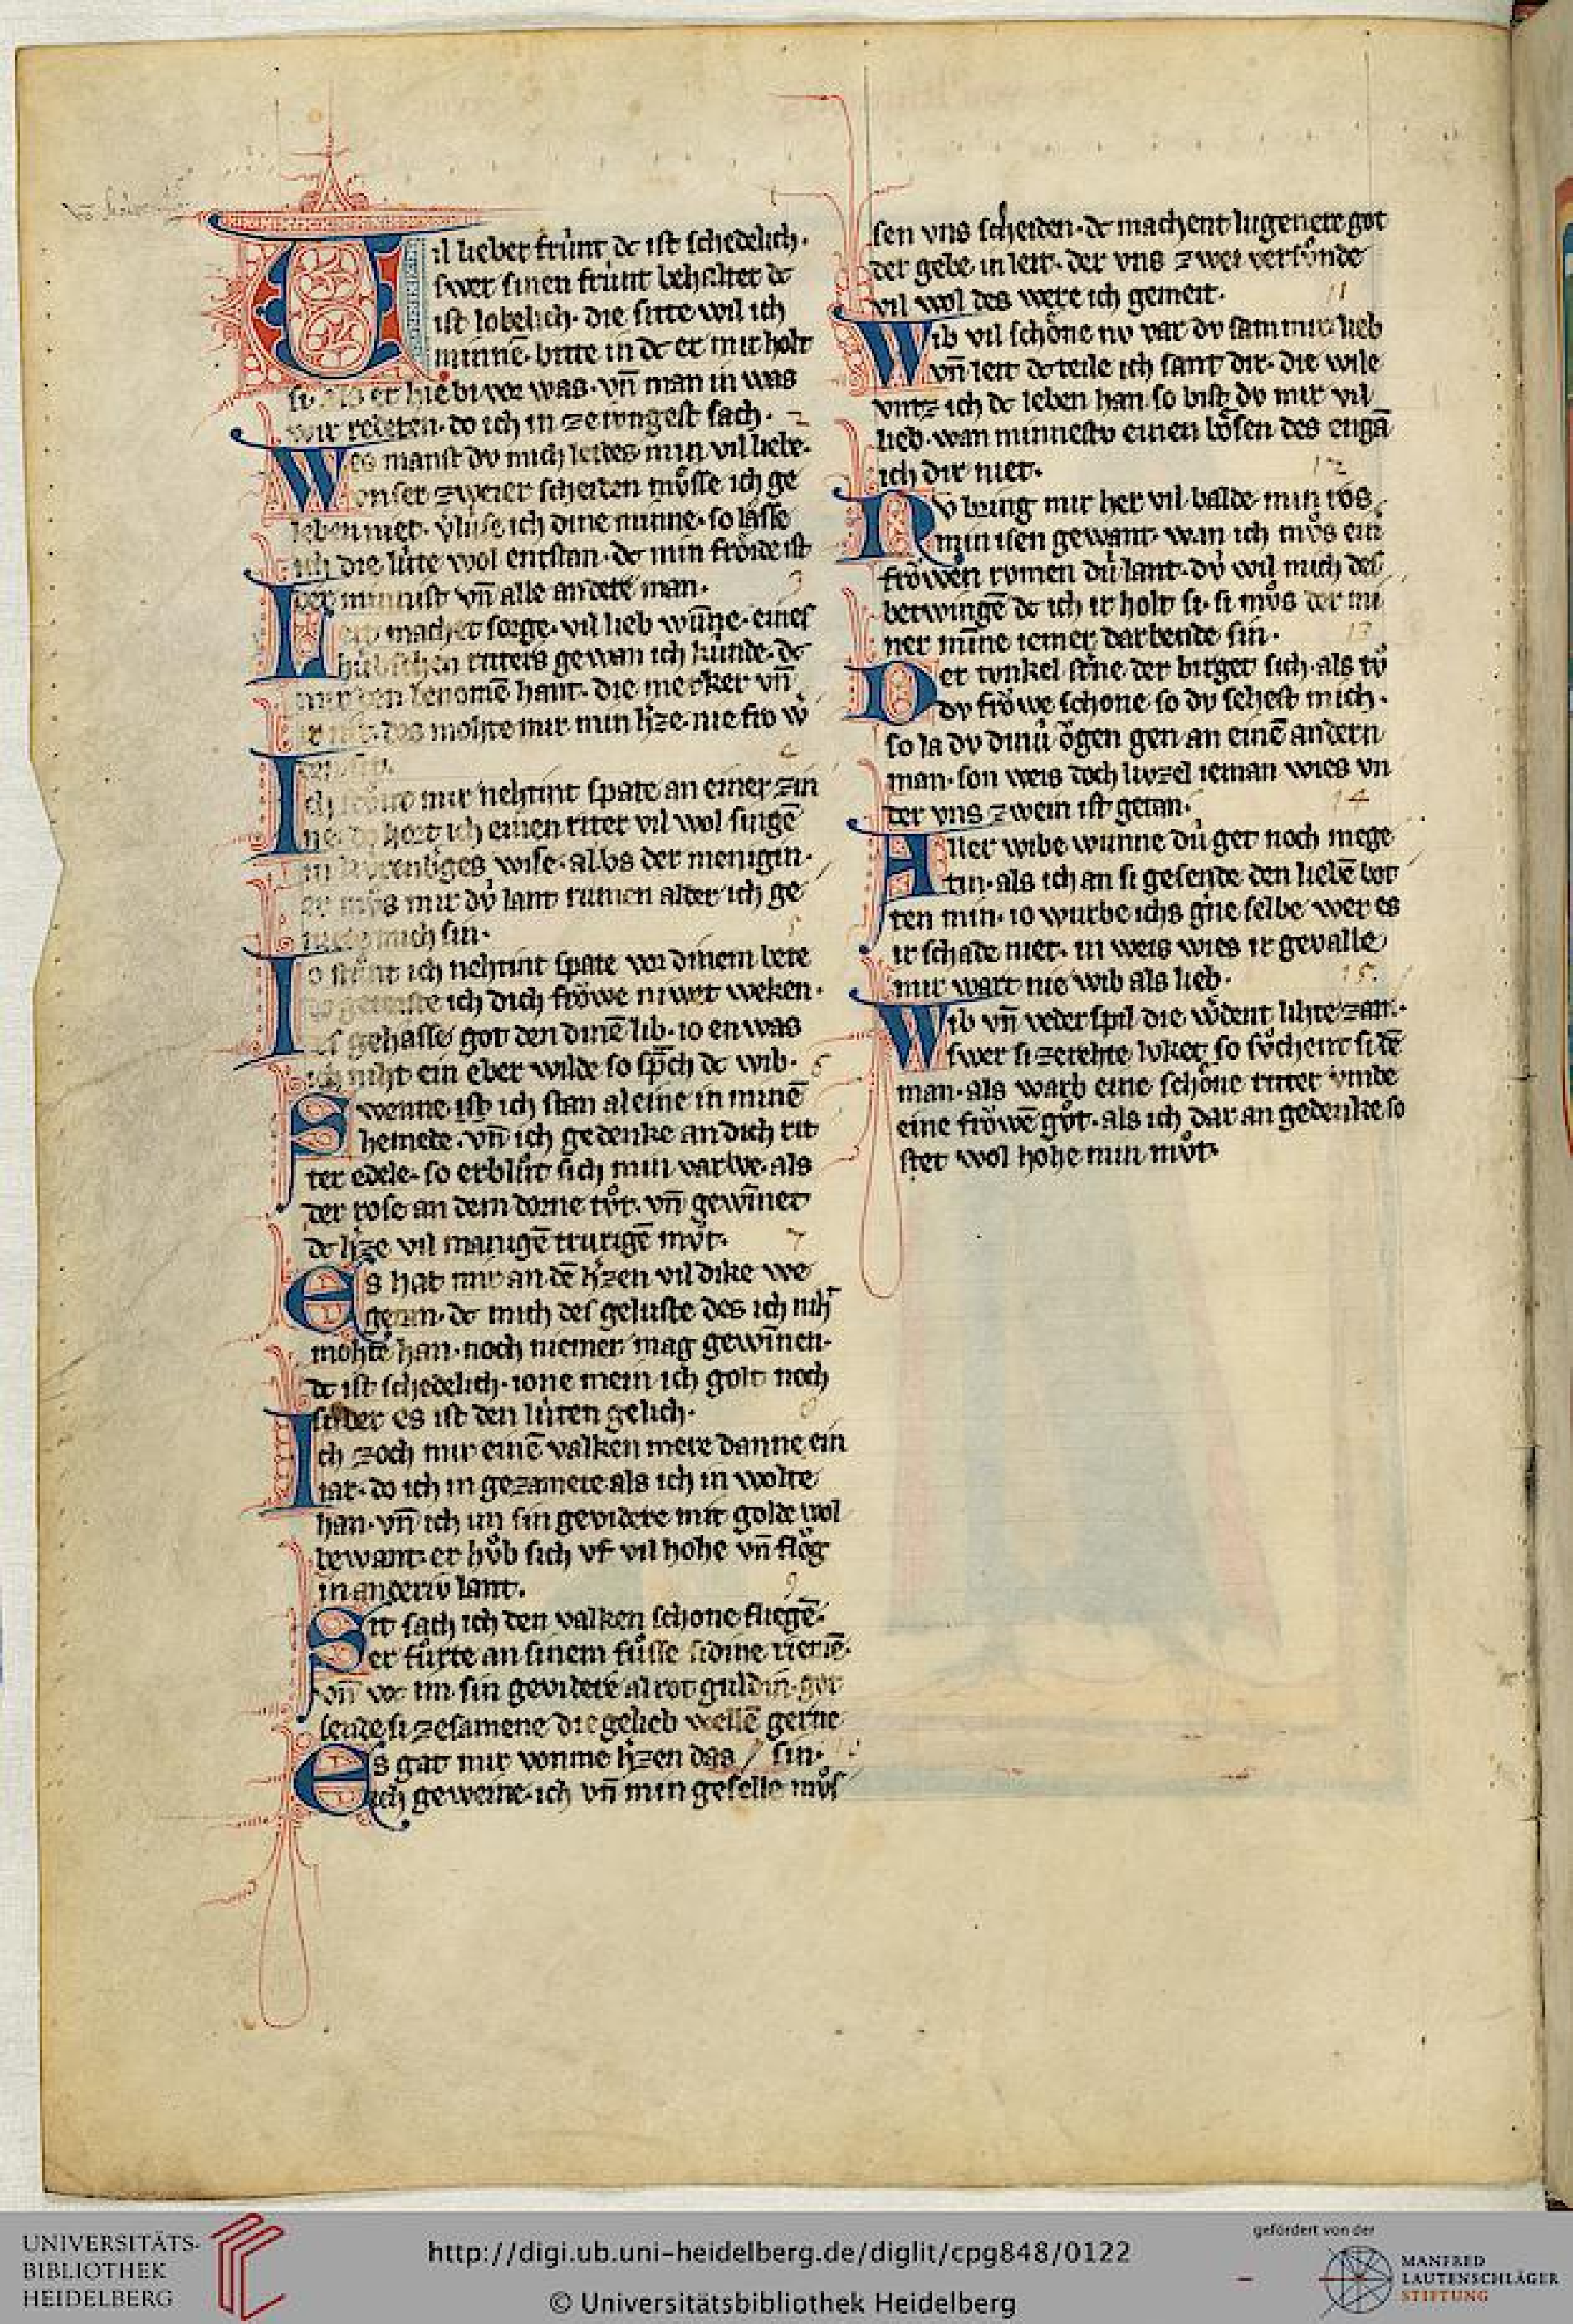 Vil lieber frúnt dc ist schedelich·
swer sinen frúnt behaltet dc
ist lobelich· die sitte wil ich
minnē· bitte in dc er mir holt
si· als er hie bi vor was· vn̄ man in was
wir redeten· do ich in ze ivngest sach·
2
Wes manst dv mich leides min vil liebe·
vnser zweier scheiden mv̊sse ich ge
leben niet· v̾lúse ich dine minne· so lasse
ich die lúte wol entstan· dc min frȏide ist
der minnist vn̄ alle andere man·
3
Leit machet sorge· vil lieb wūne· eines
húbschen ritters gewan ich kúnde· dc
mir den benomē hant· die merker vn̄
ir nit· des mohte mir min h̾ze nie fro w̾
den sin·
4
Ich stv̊nt mir nehtint spate an einer zin
ne· do hort ich einen riter vil wol singē
in kúrenbges wise· al vs der menigin·
er mv̊s mir dú lant rumen alder ich ge
niete mich sin·
5
Io stv̊nt ich nehtint spate vor dinem bete
do getorste ich dich frȏwe niwet weken·
des gehasse got den dinē lib· io enwas
ich niht ein eber wilde so sp̄ch dc wib·
6
Swenne ich stan aleine in minē
hemede· vn̄ ich gedenke an dich rit
ter edele· so erblůt sich min varwe· als
der rose an dem dorne tv̊t· vn̄ gewīnet
dc h̾ze vil manigē trurigē mv̊t·
7
Es hat mir an dē h̾zen vil dike we
getan· dc mich des geluste des ich niht
mohte han· noch niemer mag gewīnen·
dc ist schedelich· ione mein ich golt noch
silber es ist den lúten gelich·
8
Ich zoch mir einē valken mere danne ein
iar· do ich in gezamete als ich in wolte
han· vn̄ ich im sin gevidere mit golde wol
bewant· er hv̊b sich vf vil hohe vn̄ flȏg
in anderiv lant·
9
Sit sach ich den valken schone fliegē·
er fůrte an sinem fůsse sidine riemē·
vn̄ was im sin gevidere al rot guldin· got
sende si zesamene die gelieb wellē gerne
Es gat mir vonme h̾zen das / sin·
ich geweine· ich vn̄ min geselle mv̊s
sen vns scheiden· dc machent lugenere got
der gebe in leit· der vns zwei versv̊nde
vil wol des were ich gemeit·
11
Wib vil schȏne nv var dv sam mir· lieb
vn̄ leit dc teile ich sant dir· die wile
vntz ich dc leben han· so bist dv mir vil
lieb· wan minnestv einen bȏsen des engā
ich dir niet·
12
Nv bring mir her vil balde· min ros·
min isen gewant· wan ich mv̊s ein
frȏwen rvmen dú lant· dú wil mich des
betwingē dc ich ir holt si· si mv̊s der mi
ner mīne iemer darbende sin·
13
Der tvnkel st̾ne der birget sich· als tv̊
dv frȏwe schone so dv sehest mich·
so la dv dinú ȏgen gen an einē andern
man· son weis doch lúzel ieman wies vn
der vns zwein ist getan·
14
Aller wibe wunne dú get noch mege
tin· als ich an si gesende den liebē bot
ten min· io wurbe ichs g̾ne selbe wer es
ir schade niet· in weis wies ir gevalle
mir wart nie wib als lieb·
15·
Wib vn̄ vederspil die w̾dent lihte zam·
swer si ze rehte luket so sv̊chent si dē
man· als warb eine schȏne ritter vmbe
eine frȏwē gv̊t· als ich dar an gedenke so
stet wol hohe min mv̊t·
UNIVERSITÄTS-
BIBLIOTHEK
HEIDELBERG
http://digi.ub.uni-heidelberg.de/diglit/cpg848/0122
© Universitätsbibliothek Heidelberg
gefördert von der
MANFRED
LAUTENSCHLÄGER
STIFTUNG